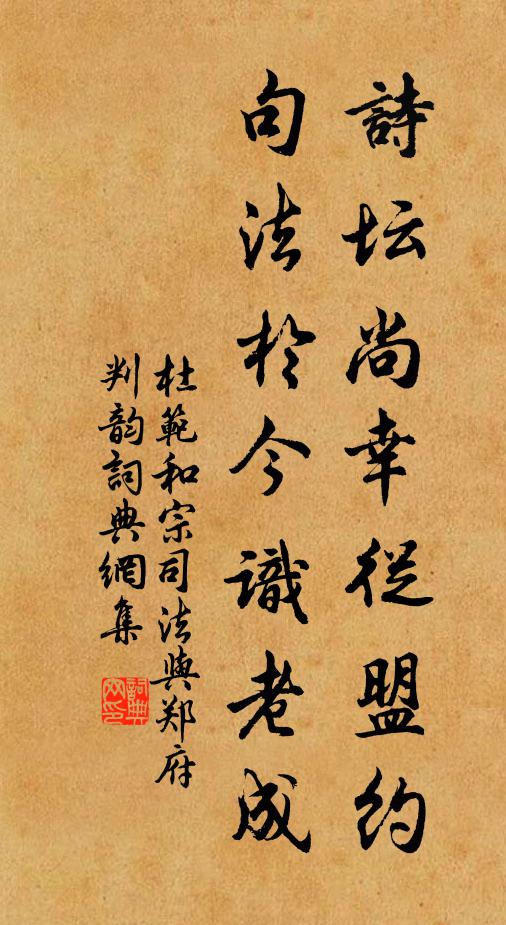 詩坛尚幸從盟約
句法於今識老成
杜範和宗司法與郑府
判韵詞典網集
詞典
网印